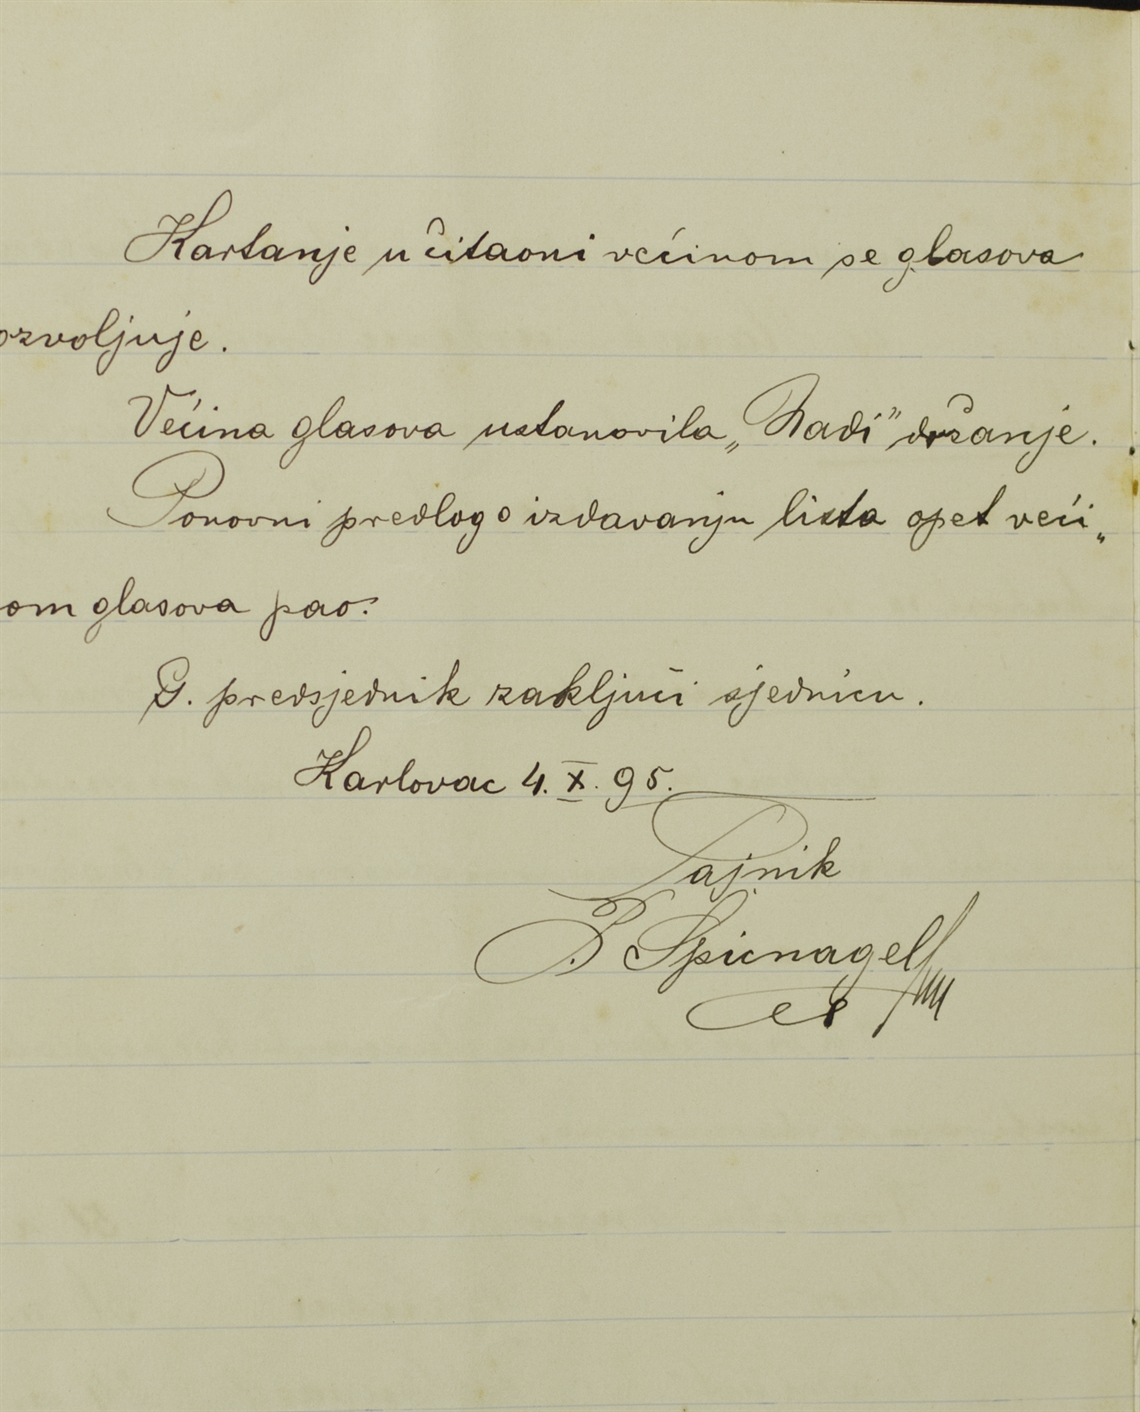 Kartanje u čitaoni većinom se glasova
ozvoljuje.
Većina glasova ustanovila „Nadi" držanje.
Ponovni predlog o izdavanju lista opet veći„
om glasova pao.
G. predsjednik zaključi sjednicu.
Karlovac 4. X. 95.
Tajnik
Špicnagel